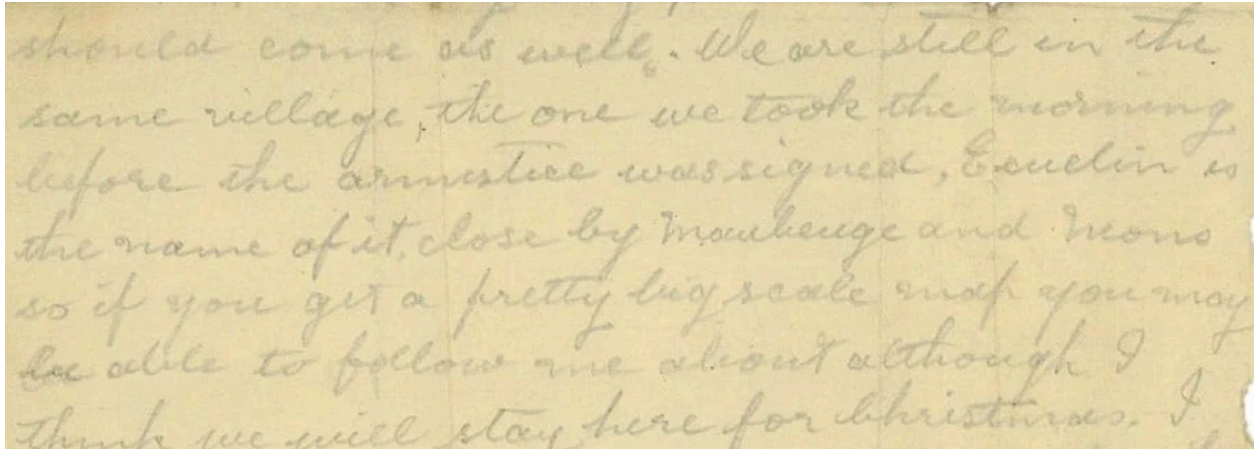 should come as well. We are still in the
same village, the one we took the morning
before the armistice was signed, Ecuelin is
the name of it, close by Maubeuge and Mons
so if you get a pretty big scale map you may
be able to follow me about although I
think we will stay here for Christmas. I